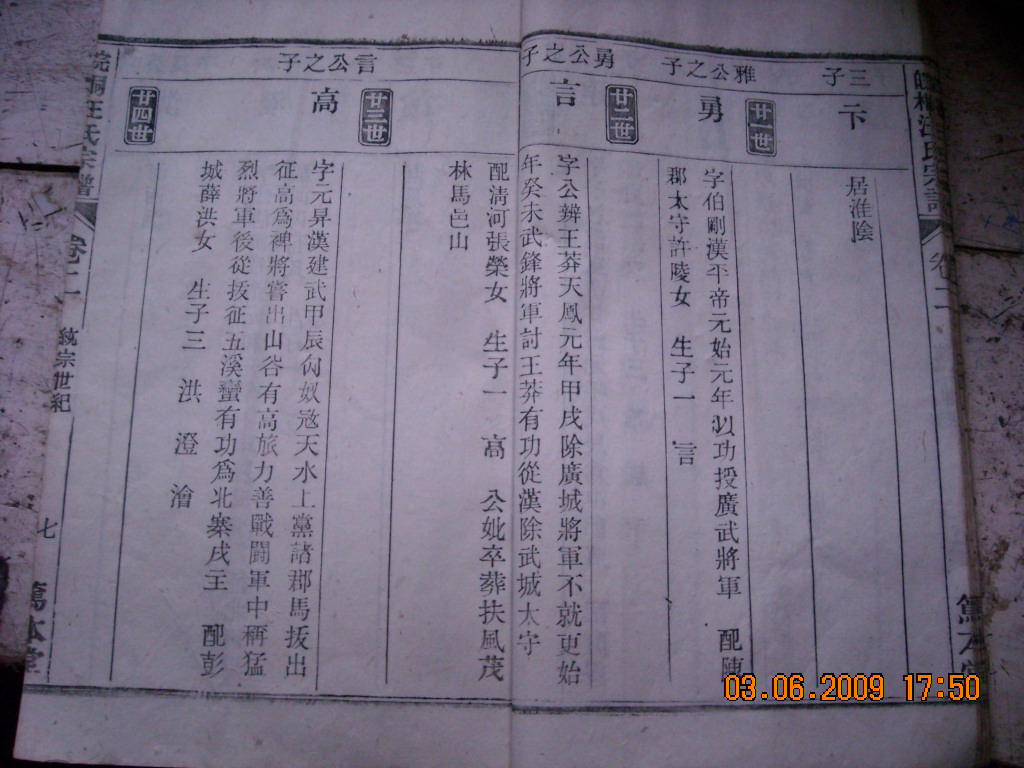 皖桐汪氏宗譜
卷二
篤本堂
三子
卞
居淮陰
廿一世
雅公之子
勇
字伯剛漢平帝元始元年以功授廣武將軍 配陳
郡太守許陵女 生子一 言
廿二世
勇公之子
言
字公辨王莽天鳳元年甲戌除廣城將軍不就更始
年癸未武鋒將軍討王莽有功從漢除武城太守
配淸河張榮女 生子一 高 公妣卒葬扶風茂
林馬邑山
廿三世
言公之子
高
字元昇漢建武甲辰匈奴寇天水上黨諸郡馬拔出
征高爲裨將嘗出山谷有高旅力善戰鬪軍中稱猛
烈將軍後從拔征五溪蠻有功爲北寨戌王 配彭
城薛洪女 生子三 洪 澄 澮
廿四世
皖桐汪氏宗譜
卷二
統宗世紀
七
篤本堂
03.06.2009 17:50